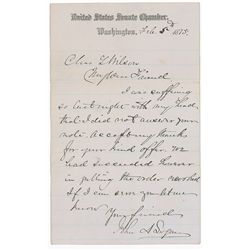 United States Senate Chamber,
Washington, Feb 5th 1875.
Chas L Wilson
My dear Friend
I was suffering
so last night with my head
that I did not answer your
note. Accept my thanks
for your kind offer. We
had succeeded
in getting the order
If I can serve you let me
know
Your friend
John A Logan